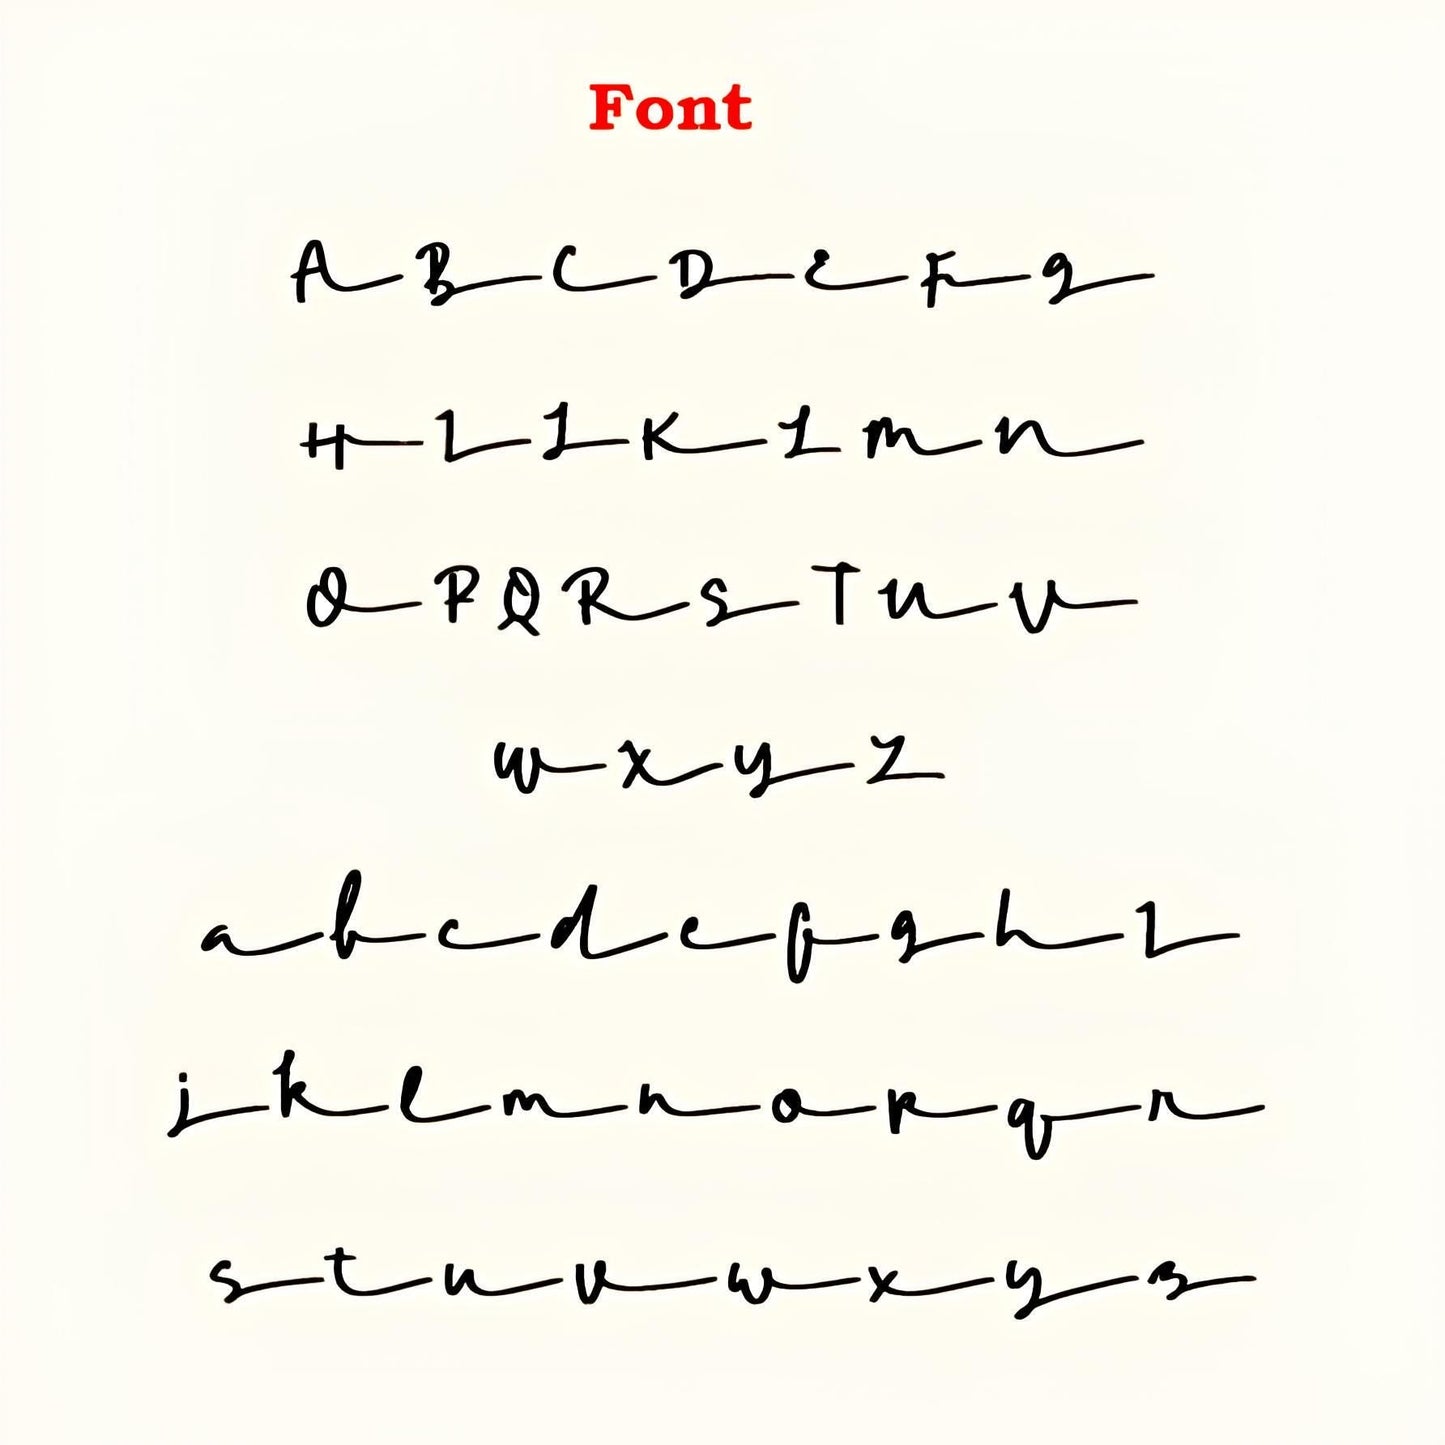 Font
A B C D E F G
H I J K L M N
O P Q R S T U V
W X Y Z
a b c d e f g h i
j k l m n o p q r
s t u v w x y z